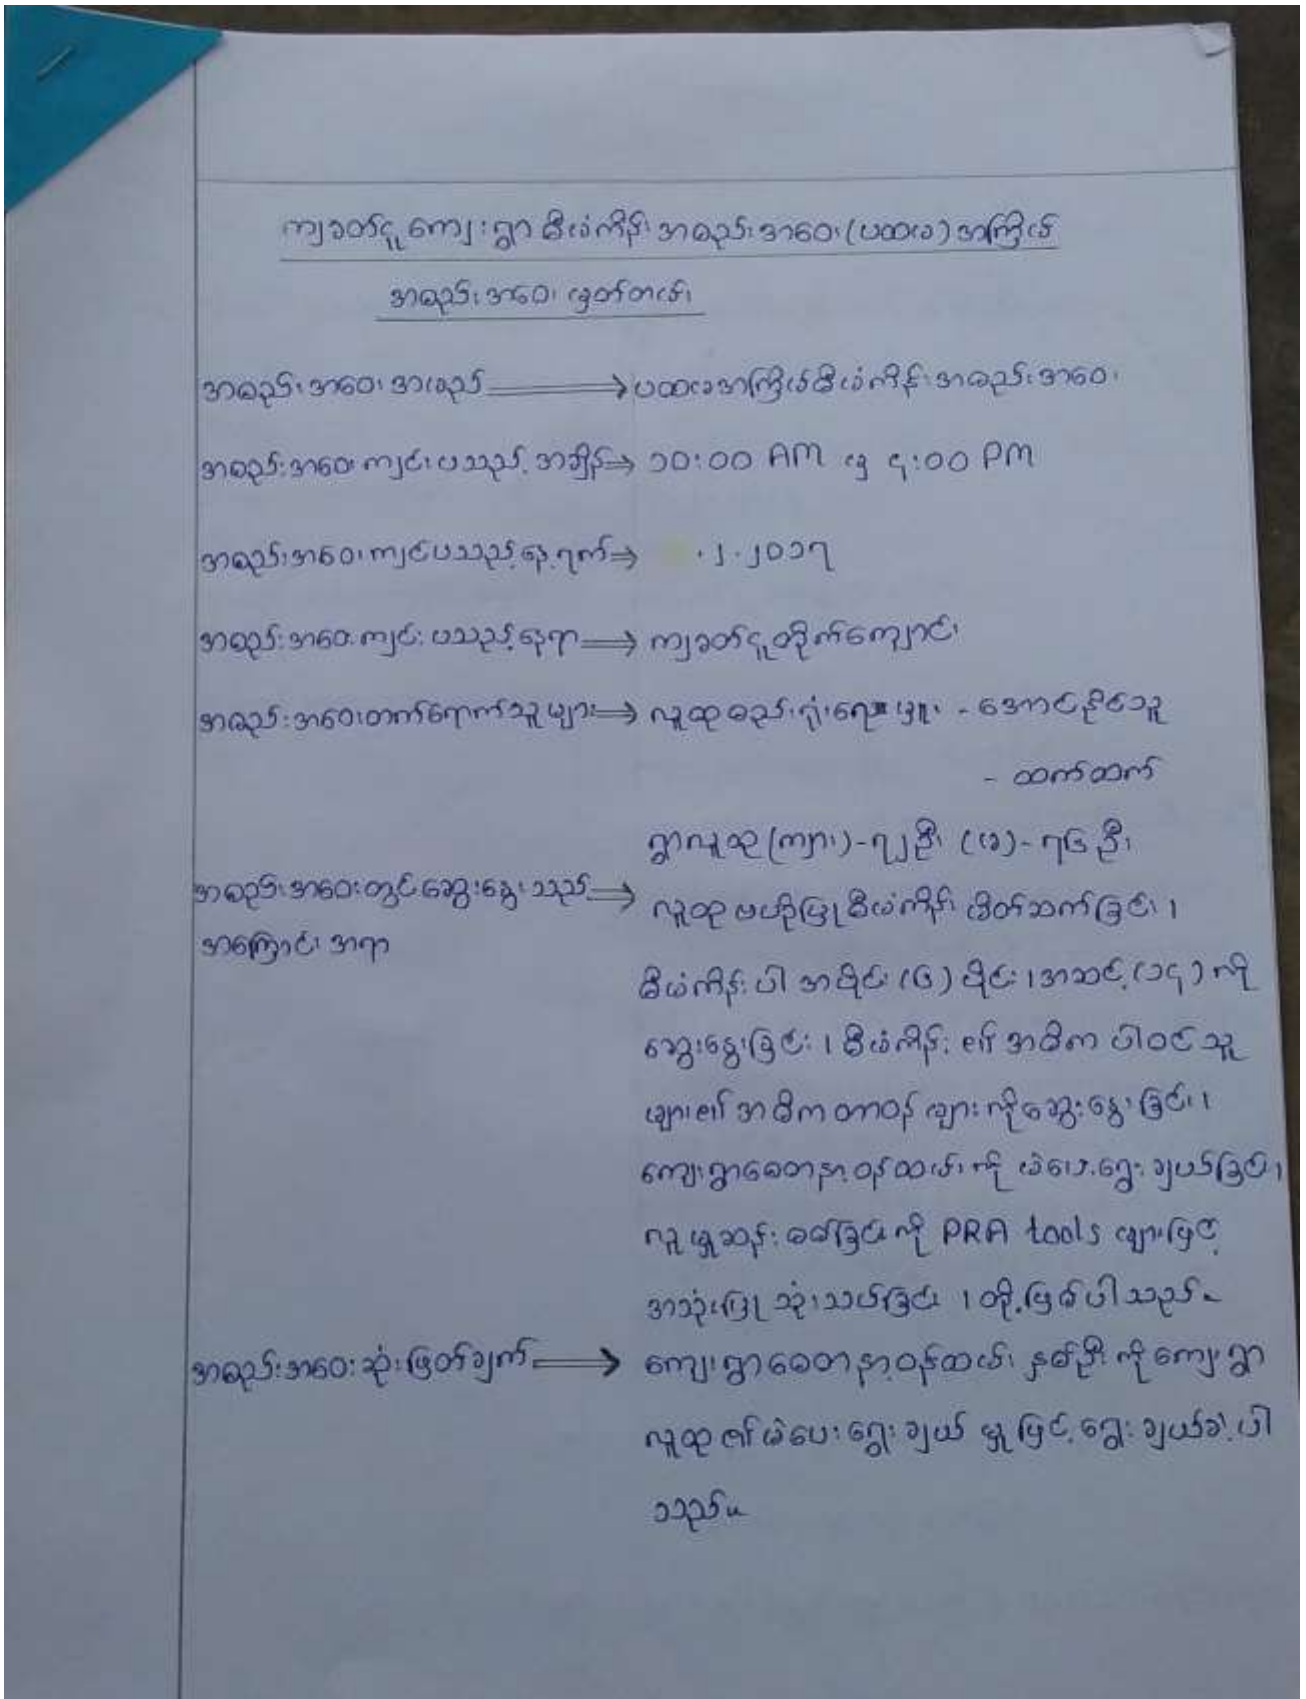 ကျခတ်ငူကျေးရွာ စီမံကိန်း အစည်းအဝေး (ပထမ) အကြိမ်
အစည်းအဝေး မှတ်တမ်း
အစည်းအဝေး အမည် ⟹ ပထမအကြိမ်စီမံကိန်း အစည်းအဝေး
အစည်းအဝေး ကျင်းပသည့် အချိန် ⟹ ၁၀:၀၀ AM မှ ၄:၀၀ PM
အစည်းအဝေးကျင်ပသည့်နေ့ရက် ⟹ .၂.၂၀၁၇
အစည်းအဝေး ကျင်းပသည့်နေရာ ⟹ ကျခတ်ငူတိုက်ကျောင်း
အစည်းအဝေးတက်ရောက်သူများ ⟹ လူထုစည်းရုံးရေးမှူး - အောင်နိုင်သူ
- ထက်ထက်
ရွာလူထု (ကျား) - ၇၂ ဦး (မ) - ၇၆ ဦး
အစည်းအဝေးတွင်ဆွေးနွေးသည့် ⟹ လူထုဗဟိုပြုစီမံကိန်း မိတ်ဆက်ခြင်း ၊
အကြောင်း အရာ
စီမံကိန်းပါ အပိုင်း (၆) ပိုင်း ၊ အဆင့် (၁၄) ကို
ဆွေးနွေးခြင်း ၊ စီမံကိန်း ၏ အဓိက ပါဝင်သူ
များ၏ အဓိက တာဝန်များကိုဆွေးနွေးခြင်း ၊
ကျေးရွာစေတနာ့ဝန်ထမ်းကို မဲပေးရွေးချယ်ခြင်း ၊
လူမှုဆန်းစစ်ခြင်းကို PRA tools များဖြင့်
အသုံးပြုသုံးသပ်ခြင်း ၊ တို့ဖြစ်ပါသည်။
အစည်းအဝေးဆုံးဖြတ်ချက် ⟹ ကျေးရွာစေတနာ့ဝန်ထမ်း နှစ်ဦးကိုကျေးရွာ
လူထု၏မဲပေးရွေးချယ် မှုဖြင့်ရွေးချယ်ခဲ့ပါ
သည်။